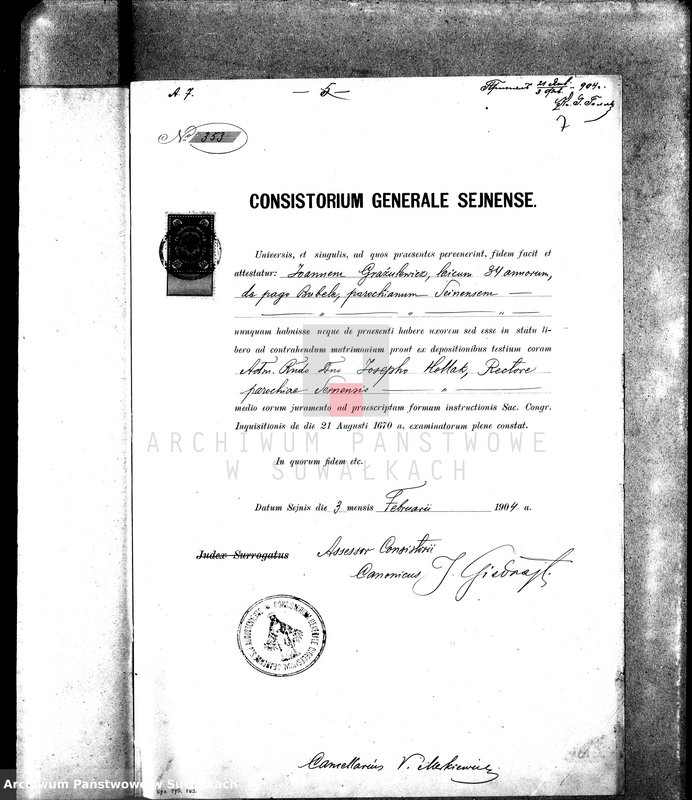 A. 7.
— 5 —
904.
No 353
CONSISTORIUM GENERALE SEJNENSE.
Universis, et singulis, ad quos praesentes pervenerint, fidem facit et
attestatur: Joannem Grażulewicz, laicum 34 annorum,
de pago Bubele, parochianum Seinensem —
nunquam habuisse neque de praesenti habere uxorem sed esse in statu li-
bero ad contrahendum matrimonium prout ex depositionibus testium coram
Adm. Rndo Dno Josepho Kollak, Rectore
parochiae Seinensis —
medio eorum juramento ad praescriptam formam instructionis Sac. Congr.
Inquisitionis de die 21 Augusti 1670 a. examinatorum plene constat.
ARCHIWUM PAŃSTWOWE
W SUWAŁKACH
In quorum fidem etc.
Datum Sejnis die 3 mensis Februarii 1904 a.
Judex Surrogatus
Assessor Consistorii
Canonicus J.
Cancellarius V.
Archiwum Państwowe w Suwałkach